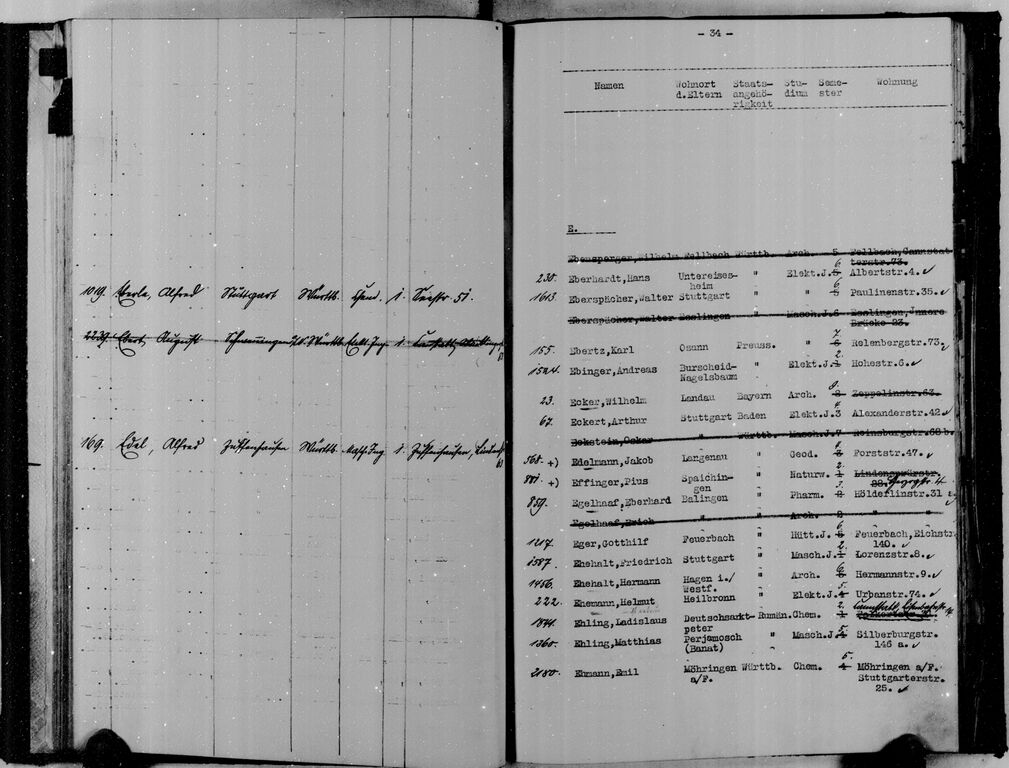 1019. Eberle, Alfred Stuttgart Württb. 1. Seestr. 51.
2239. Ebert August Württb. Elekt. Ing. 1
169. Edel, Alfred Zuffenhausen Württb. Masch. Ing 1. Zuffenhausen,
- 34 -
Namen Wohnort Staats- Stu- Seme- Wohnung
d.Eltern angehö- dium ster
rigkeit
E.
Ebensperger,Wilhelm Fellbach Württb. Arch. 5 Fellbach,Cannstat
6 terstr.73.
230. Eberhardt,Hans Untereises- " Elekt.J.5 Albertstr.4.
heim 6
1613. Eberspächer,Walter Stuttgart " " 5 Paulinenstr.35.
Eberspächer,Walter Esslingen " Masch.J.6 Esslingen,Innere
Brücke 23.
7
155. Ebertz,Karl Osann Preuss. " 6 Relenbergstr.73.
2.
1524. Ebinger,Andreas Burscheid- " Elekt.J.1 Hohestr.6.
Nagelsbaum
23. Ecker,Wilhelm Landau Bayern Arch. 8 Zeppelinstr.63.
4
67. Eckert,Arthur Stuttgart Baden Elekt.J.3 Alexanderstr.42
Eckstein,Oskar " Württb. Masch.J.7 Reinsburgstr.68 b.
568. +) Edelmann,Jakob Langenau " Geod. 3 Forststr.47.
2.
881. +) Effinger,Pius Spaichin- " Naturw. 1 Lindenspürstr.
gen 3. 28.
859. Egelhaaf,Eberhard Balingen " Pharm. 2 Hölderlinstr.31
Egelhaaf,Erich " " Arch. 8 " "
6.
1217. Eger,Gotthilf Feuerbach " Hütt.J. 5 Feuerbach,Eichstr
2. 140.
1587. Ehehalt,Friedrich Stuttgart " Masch.J.1 Lorenzstr.8.
6.
1456. Ehehalt,Hermann Hagen i./ " Arch. 5 Hermannstr.9.
Westf. 5.
222. Ehemann,Helmut Heilbronn " Elekt.J.4 Urbanstr.74.
2.
1844. Ehling,Ladislaus Deutschsankt- Rumän. Chem. 1
peter 5.
1360. Ehling,Matthias Perjamosch " Masch.J.4 Silberburgstr.
(Banat) 146 a.
5.
2180. Ehmann,Emil Möhringen Württb. Chem. 4 Möhringen a/F.
a/F. Stuttgarterstr.
25.